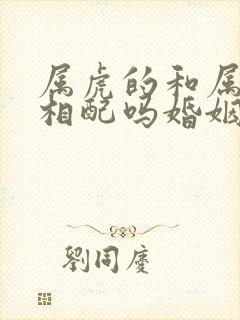 属虎的和属
相配吗婚姻
劉同慶